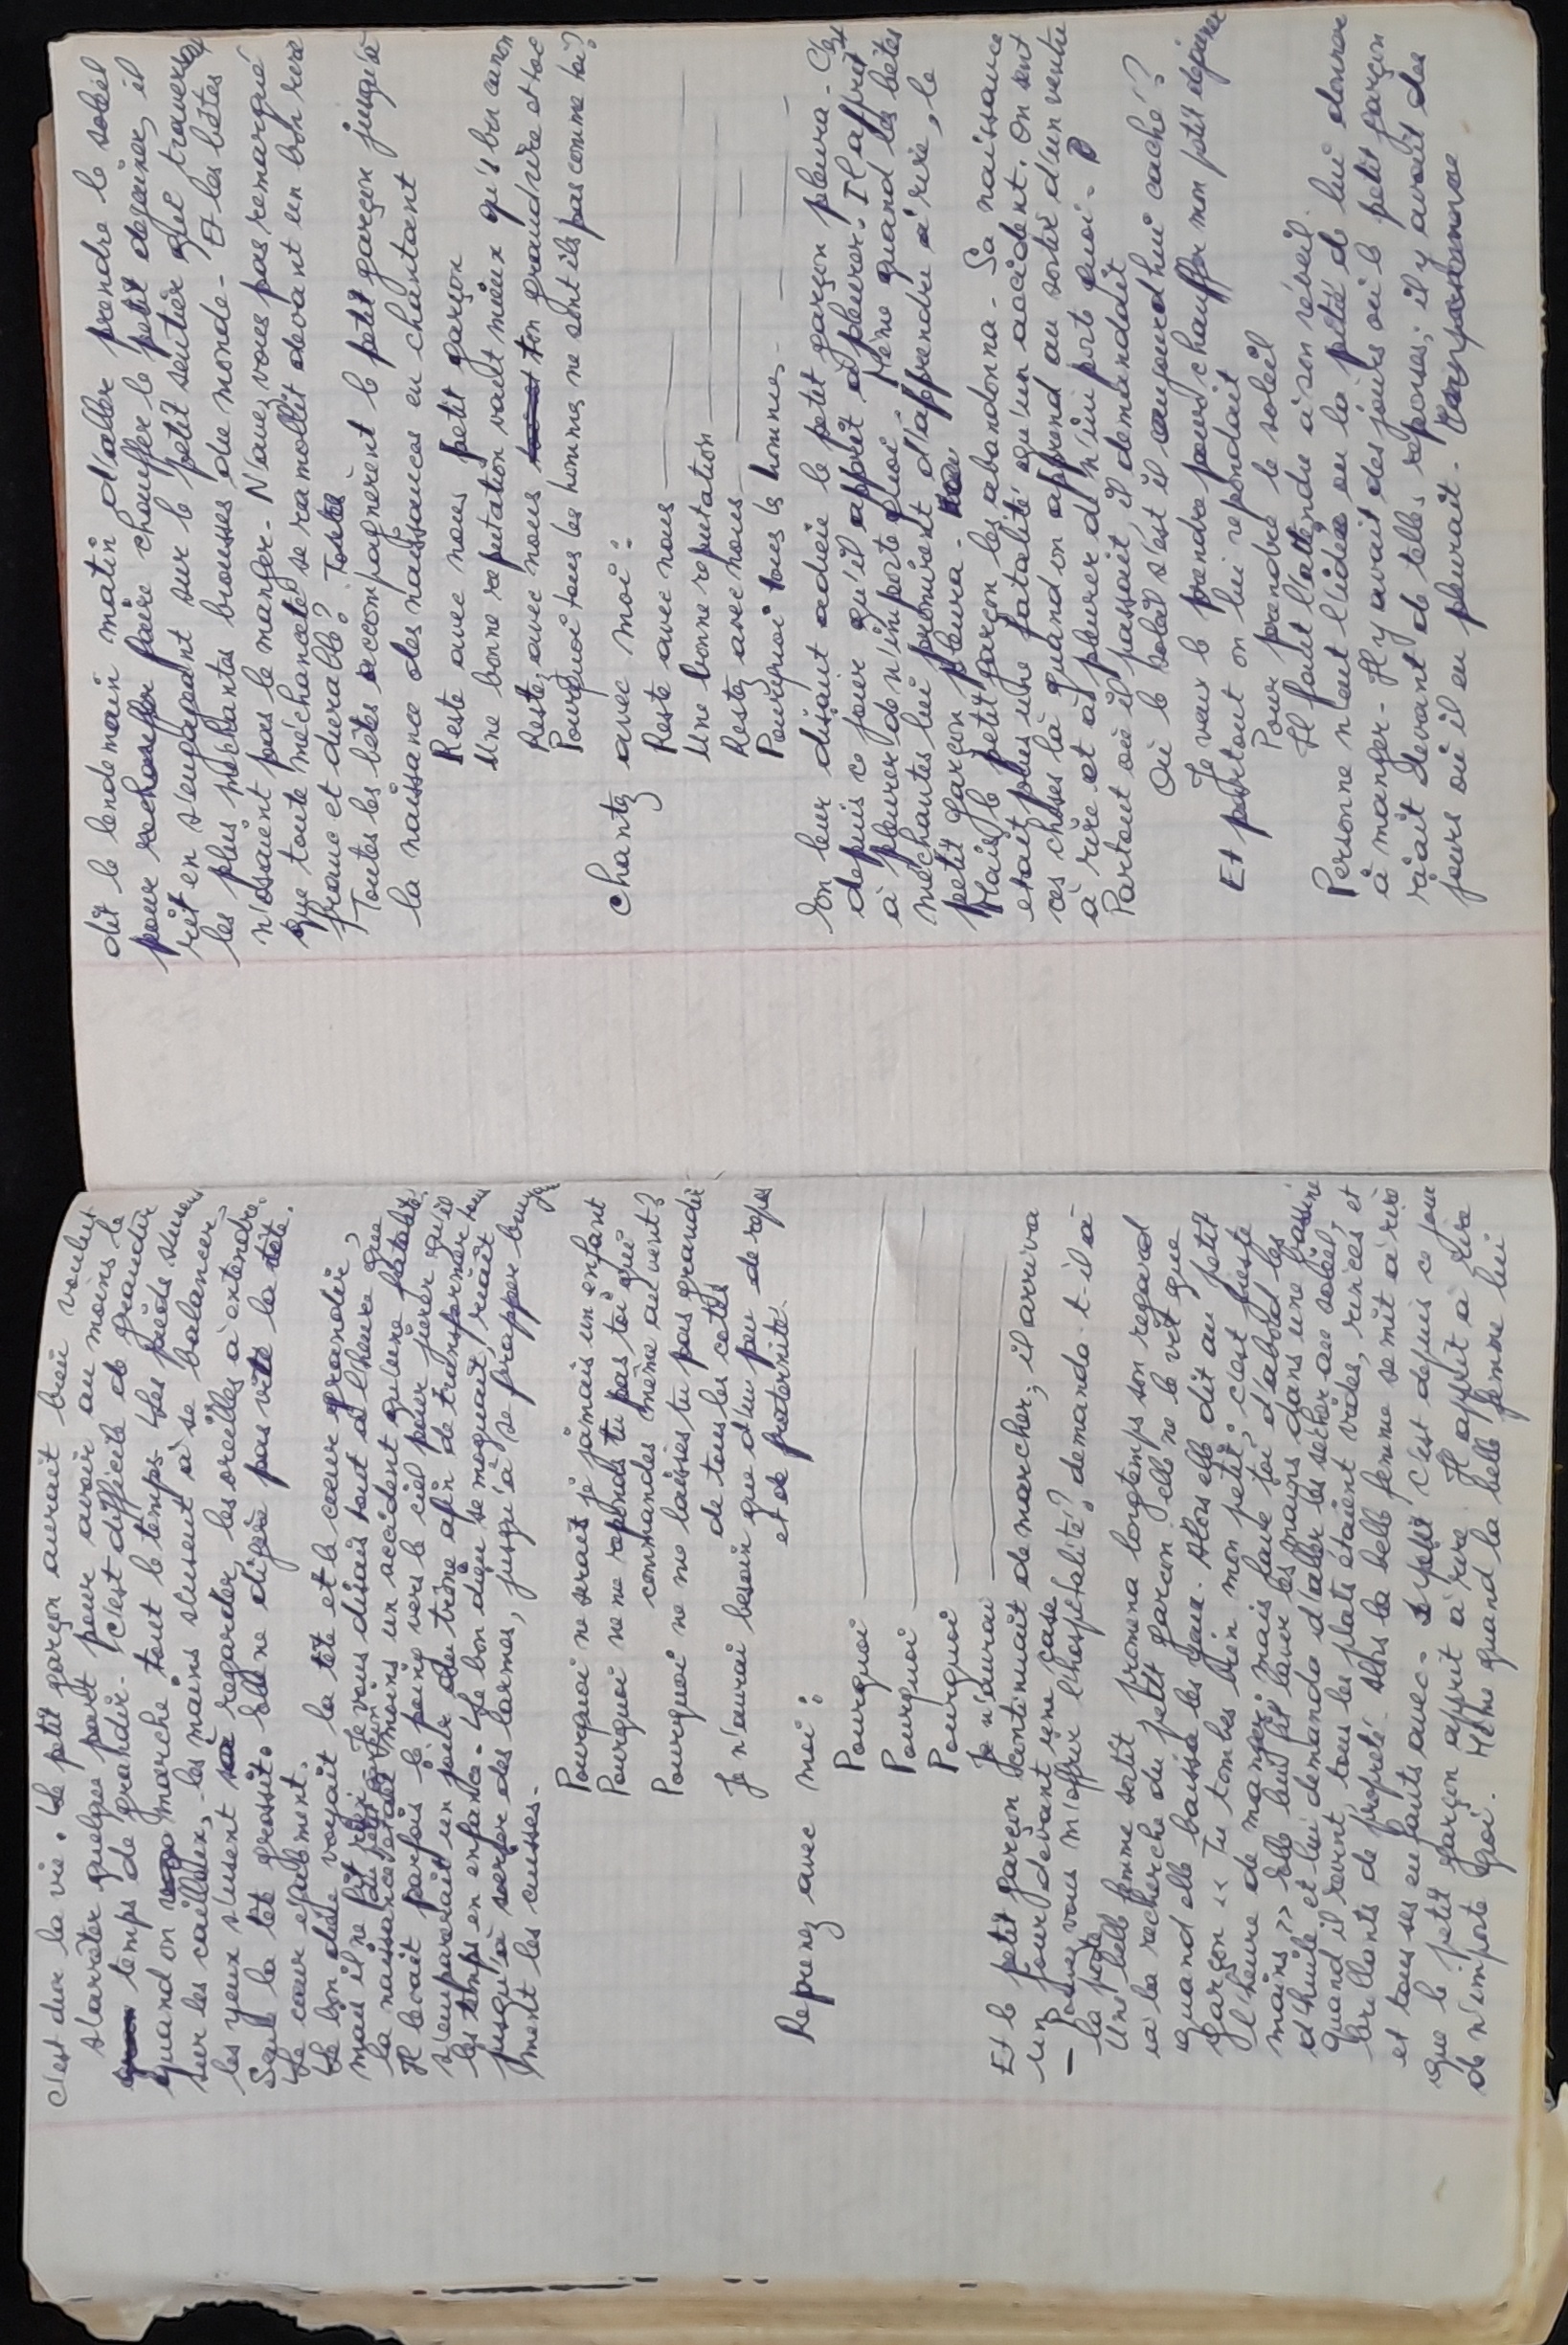 c'est dur la vie. Le petit garçon aurait bien voulut
s'arrêter quelque part pour avoir au moins le
temps de grandir. C'est difficile de grandir
quand on marche tout le temps. Les pieds s'usent
sur les cailloux, les mains s'usent à se balancer,
les yeux s'usent à regarder, les oreilles à entendre.
Seule la tête grossit. Elle ne digère pas vite la tête.
Le cœur également.
Le bon dieu voyait la tête et le cœur grandir,
mais il ne fit rien. Je vous disais tout à l'heure que
la naissance du petit garçon était moins un accident qu'une fatalité.
Il levait parfois le poing vers le ciel pour jurer qu'il
s'emparerait un jour du trône afin de transformer tous
les temps en enfance. Le bon dieu se moquait, riait
jusqu'à verser des larmes, jusqu'à se frapper bruya
ment les cuisses.
Pourquoi ne serais je jamais un enfant
Pourquoi ne me réponds tu pas toi qui
commandes même au vent?
Pourquoi ne me laisses tu pas grandir
de tous les cotés
Je n'aurai besoin que d'un peu de repos
et de fraternité.
Reprenez avec moi :
Pourquoi
Pourquoi
Pourquoi
Je n'aurai
Et le petit garçon continuait de marcher; il arriva
un jour devant une case
- Pouvez vous m'offrir l'hospitalité? demanda-t-il à
la porte
Une belle femme sortit promena longtemps son regard
à la recherche du petit garçon. elle ne le vit que
quand elle baissa les yeux. Alors elle dit au petit
garçon << Tu tombes bien mon petit; c'est juste
l'heure de manger mais lave toi d'abord les
mains >> Elle leur fit laver les mains dans une bassine
d'huile et lui demanda d'aller les sécher au soleil,
quand il revint, tous les plats étaient vides, rincés et
brillants de propreté. Alors la belle femme se mit à rire
et tous ses enfants avec. C'est depuis ce jour
que le petit garçon apprit à rire. Il apprit à rire
de n'importe quoi. Même quand la belle femme lui
dit le lendemain matin d'aller prendre le soleil
pour faire chauffer le petit dejeiner, il
rit en s'engageant sur le petit sentier qui traverse
les plus méchantes brousses du monde. Et les bêtes
n'osaient pas le manger. N'avez vous pas remarqué
que toute méchanceté se ramollit devant un bon rire
franc et durable?
Toutes les bêtes accompagnèrent le petit garçon jusqu'à
la naissance des naissances en chantant
Reste avec nous petit garçon
Une bonne reputation vaut mieux qu'1 bon canon
Reste, avec nous ton grand rire et toi
Pourquoi tous les hommes ne sont ils pas comme toi?
Chantez avec moi :
Reste avec nous
Une bonne reputation
Restez avec nous
Pourquoi tous les hommes
En leur disant adieu le petit garçon pleura. C'est
depuis ce jour qu'il apprit à pleurer. Il apprit
à pleurer de n'importe quoi. Même quand les bêtes
méchantes lui promirent d'apprendre à rire, le
petit garçon pleura.
Mais le petit garçon les abandonna. Sa naissance
etait plus une fatalité qu'un accident. On sent
ces choses là quand on apprend au sortir d'un ventre
à rire et à pleurer de n'importe quoi.
Partout où il passait, il demandait
Où le soleil s'est il aujourd'hui caché?
Je veux le prendre pour chauffer mon petit déjeuner
Et partout on lui repondait
Pour prendre le soleil
Il faut l'attendre à son réveil.
Personne n'eut l'idée ou la pitié de lui donner
à manger. Il y avait des jours où le petit garçon
riait devant de telles réponses; il y avait des
jours où il en pleurait.